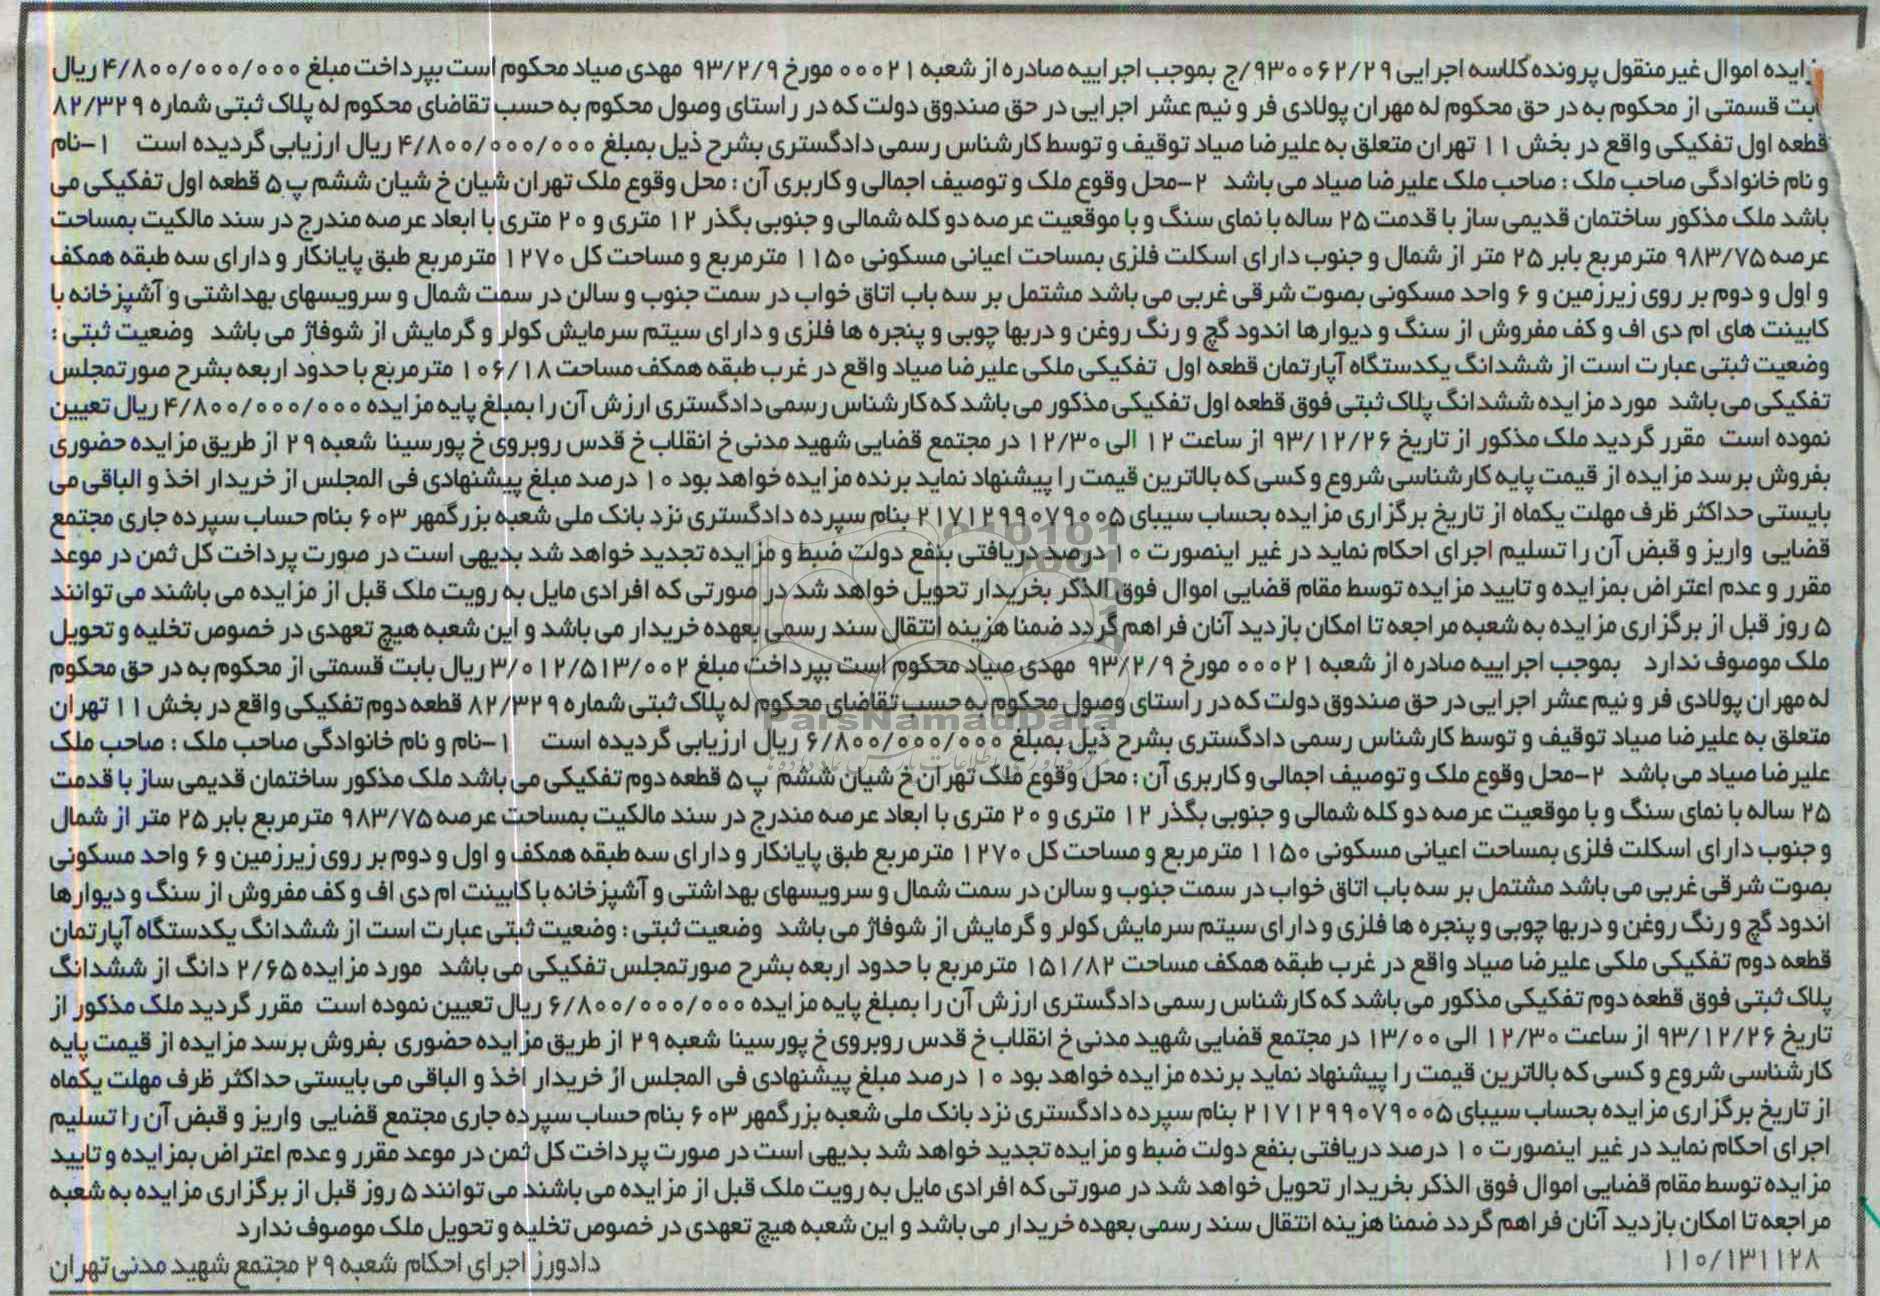 زایده اموال غیر منقول پرونده کلاسه اجرایی ۹۳۰۰۶۲/۲۹/ج بموجب اجراییه صادره از شعبه ۰۰۰۲۱ مورخ ۹۳/۲/۹ مهدی صیاد محکوم است بپرداخت مبلغ ۴/۸۰۰/۰۰۰/۰۰۰ ریال
ابت قسمتی از محکوم به در حق محکوم له مهران پولادی فر و نیم عشر اجرایی در حق صندوق دولت که در راستای وصول محکوم به حسب تقاضای محکوم له پلاک ثبتی شماره ۸۲/۳۲۹
قطعه اول تفکیکی واقع در بخش ۱۱ تهران متعلق به علیرضا صیاد توقیف و توسط کارشناس رسمی دادگستری بشرح ذیل بمبلغ ۴/۸۰۰/۰۰۰/۰۰۰ ریال ارزیابی گردیده است ۱-نام
و نام خانوادگی صاحب ملک : صاحب ملک علیرضا صیاد می باشد ۲-محل وقوع ملک و توصیف اجمالی و کاربری آن : محل وقوع ملک تهران شیان خ شیان ششم پ ۵ قطعه اول تفکیکی می
باشد ملک مذکور ساختمان قدیمی ساز با قدمت ۲۵ ساله با نمای سنگ و با موقعیت عرصه دو کله شمالی و جنوبی بگذر ۱۲ متری و ۲۰ متری با ابعاد عرصه مندرج در سند مالکیت بمساحت
عرصه ۹۸۳/۷۵ مترمربع بابر ۲۵ متر از شمال و جنوب دارای اسکلت فلزی بمساحت اعیانی مسکونی ۱۱۵۰ مترمربع و مساحت کل ۱۲۷۰ مترمربع طبق پایانکار و دارای سه طبقه همکف
و اول و دوم بر روی زیرزمین و ۶ واحد مسکونی بصوت شرقی غربی می باشد مشتمل بر سه باب اتاق خواب در سمت جنوب و سالن در سمت شمال و سرویسهای بهداشتی و آشپزخانه با
کابینت های ام دی اف و کف مفروش از سنگ و دیوارها اندود گچ و رنگ روغن و دربها چوبی و پنجره ها فلزی و دارای سیتم سرمایش کولر و گرمایش از شوفاژ می باشد وضعیت ثبتی :
وضعیت ثبتی عبارت است از ششدانگ یکدستگاه آپارتمان قطعه اول تفکیکی ملکی علیرضا صیاد واقع در غرب طبقه همکف مساحت ۱۰۶/۱۸ مترمربع با حدود اربعه بشرح صورتمجلس
تفکیکی می باشد مورد مزایده ششدانگ پلاک ثبتی فوق قطعه اول تفکیکی مذکور می باشد که کارشناس رسمی دادگستری ارزش آن را بمبلغ پایه مزایده ۴/۸۰۰/۰۰۰/۰۰۰ ریال تعیین
نموده است مقرر گردید ملک مذکور از تاریخ ۹۳/۱۲/۲۶ از ساعت ۱۲ الی ۱۲/۳۰ در مجتمع قضایی شهید مدنی خ انقلاب خ قدس روبروی خ پورسینا شعبه ۲۹ از طریق مزایده حضوری
بفروش برسد مزایده از قیمت پایه کارشناسی شروع و کسی که بالاترین قیمت را پیشنهاد نماید برنده مزایده خواهد بود ۱۰ درصد مبلغ پیشنهادی فی المجلس از خریدار اخذ و الباقی می
بایستی حداکثر ظرف مهلت یکماه از تاریخ برگزاری مزایده بحساب سیبای ۲۱۷۱۲۹۹۰۷۹۰۰۵ بنام سپرده دادگستری نزد بانک ملی شعبه بزرگمهر ۶۰۳ بنام حساب سپرده جاری مجتمع
قضایی واریز و قبض آن را تسلیم اجرای احکام نماید در غیر اینصورت ۱۰ درصد دریافتی بنفع دولت ضبط و مزایده تجدید خواهد شد بدیهی است در صورت پرداخت کل ثمن در موعد
مقرر و عدم اعتراض بمزایده و تایید مزایده توسط مقام قضایی اموال فوق الذکر بخریدار تحویل خواهد شد در صورتی که افرادی مایل به رویت ملک قبل از مزایده می باشند می توانند
۵ روز قبل از برگزاری مزایده به شعبه مراجعه تا امکان بازدید آنان فراهم گردد ضمنا هزینه انتقال سند رسمی بعهده خریدار می باشد و این شعبه هیچ تعهدی در خصوص تخلیه و تحویل
ملک موصوف ندارد بموجب اجراییه صادره از شعبه ۰۰۰۲۱ مورخ ۹۳/۲/۹ مهدی صیاد محکوم است بپرداخت مبلغ ۳/۰۱۲/۵۱۳/۰۰۲ ریال بابت قسمتی از محکوم به در حق محکوم
له مهران پولادی فر و نیم عشر اجرایی در حق صندوق دولت که در راستای وصول محکوم به حسب تقاضای محکوم له پلاک ثبتی شماره ۸۲/۳۲۹ قطعه دوم تفکیکی واقع در بخش ۱۱ تهران
ParsNamadData
متعلق به علیرضا صیاد توقیف و توسط کارشناس رسمی دادگستری بشرح ذیل بمبلغ ۶/۸۰۰/۰۰۰/۰۰۰ ریال ارزیابی گردیده است ۱-نام و نام خانوادگی صاحب ملک : صاحب ملک
علیرضا صیاد می باشد ۲-محل وقوع ملک و توصیف اجمالی و کاربری آن : محل وقوع ملک تهران خ شیان ششم پ ۵ قطعه دوم تفکیکی می باشد ملک مذکور ساختمان قدیمی ساز با قدمت
۲۵ ساله با نمای سنگ و با موقعیت عرصه دو کله شمالی و جنوبی بگذر ۱۲ متری و ۲۰ متری با ابعاد عرصه مندرج در سند مالکیت بمساحت عرصه ۹۸۳/۷۵ مترمربع بابر ۲۵ متر از شمال
و جنوب دارای اسکلت فلزی بمساحت اعیانی مسکونی ۱۱۵۰ مترمربع و مساحت کل ۱۲۷۰ مترمربع طبق پایانکار و دارای سه طبقه همکف و اول و دوم بر روی زیرزمین و ۶ واحد مسکونی
بصوت شرقی غربی می باشد مشتمل بر سه باب اتاق خواب در سمت جنوب و سالن در سمت شمال و سرویسهای بهداشتی و آشپزخانه با کابینت ام دی اف و کف مفروش از سنگ و دیوارها
اندود گچ و رنگ روغن و دربها چوبی و پنجره ها فلزی و دارای سیتم سرمایش کولر و گرمایش از شوفاژ می باشد وضعیت ثبتی : وضعیت ثبتی عبارت است از ششدانگ یکدستگاه آپارتمان
قطعه دوم تفکیکی ملکی علیرضا صیاد واقع در غرب طبقه همکف مساحت ۱۵۱/۸۲ مترمربع با حدود اربعه بشرح صورتمجلس تفکیکی می باشد مورد مزایده ۲/۶۵ دانگ از ششدانگ
پلاک ثبتی فوق قطعه دوم تفکیکی مذکور می باشد که کارشناس رسمی دادگستری ارزش آن را بمبلغ پایه مزایده ۶/۸۰۰/۰۰۰/۰۰۰ ریال تعیین نموده است مقرر گردید ملک مذکور از
تاریخ ۹۳/۱۲/۲۶ از ساعت ۱۲/۳۰ الی ۱۳/۰۰ در مجتمع قضایی شهید مدنی خ انقلاب خ قدس روبروی خ پورسینا شعبه ۲۹ از طریق مزایده حضوری بفروش برسد مزایده از قیمت پایه
کارشناسی شروع و کسی که بالاترین قیمت را پیشنهاد نماید برنده مزایده خواهد بود ۱۰ درصد مبلغ پیشنهادی فی المجلس از خریدار اخذ و الباقی می بایستی حداکثر ظرف مهلت یکماه
از تاریخ برگزاری مزایده بحساب سیبای ۲۱۷۱۲۹۹۰۷۹۰۰۵ بنام سپرده دادگستری نزد بانک ملی شعبه بزرگمهر ۶۰۳ بنام حساب سپرده جاری مجتمع قضایی واریز و قبض آن را تسلیم
اجرای احکام نماید در غیر اینصورت ۱۰ درصد دریافتی بنفع دولت ضبط و مزایده تجدید خواهد شد بدیهی است در صورت پرداخت کل ثمن در موعد مقرر و عدم اعتراض بمزایده و تایید
مزایده توسط مقام قضایی اموال فوق الذکر بخریدار تحویل خواهد شد در صورتی که افرادی مایل به رویت ملک قبل از مزایده می باشند می توانند ۵ روز قبل از برگزاری مزایده به شعبه
مراجعه تا امکان بازدید آنان فراهم گردد ضمنا هزینه انتقال سند رسمی بعهده خریدار می باشد و این شعبه هیچ تعهدی در خصوص تخلیه و تحویل ملک موصوف ندارد
۱۱۰/۱۳۱۱۲۸ دادورز اجرای احکام شعبه ۲۹ مجتمع شهید مدنی تهران